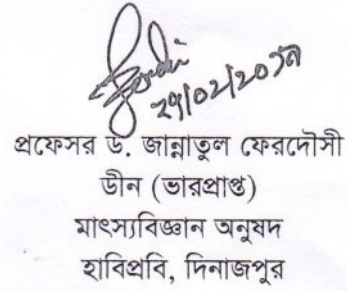 ২৭/০২/২০১৯
প্রফেসর ড. জান্নাতুল ফেরদৌসী
ডীন (ভারপ্রাপ্ত)
মাৎস্যবিজ্ঞান অনুষদ
হাবিপ্রবি, দিনাজপুর